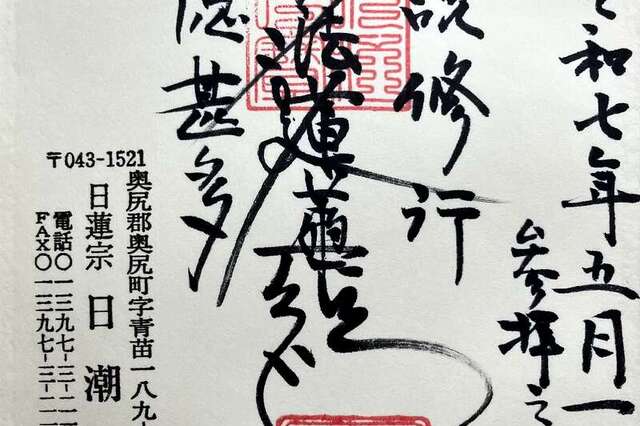 令和七年五月一
参拝之
説修行
法蓮華経
恩甚多
〒043-1521
奥尻郡奥尻町字青苗一八九-
日蓮宗 日潮
電話〇一三九七-三-二一
FAX〇一三九七-三-二一